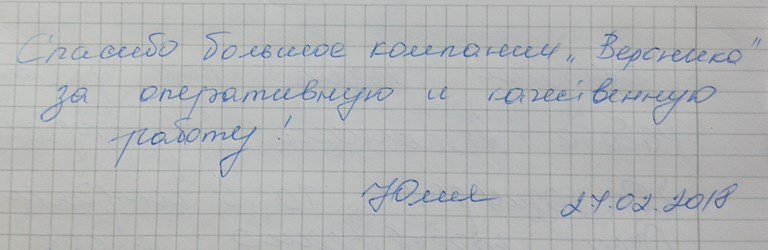 Спасибо большое компании „Вероника"
за оперативную и качественную
работу!
Юлия 27.02.2018